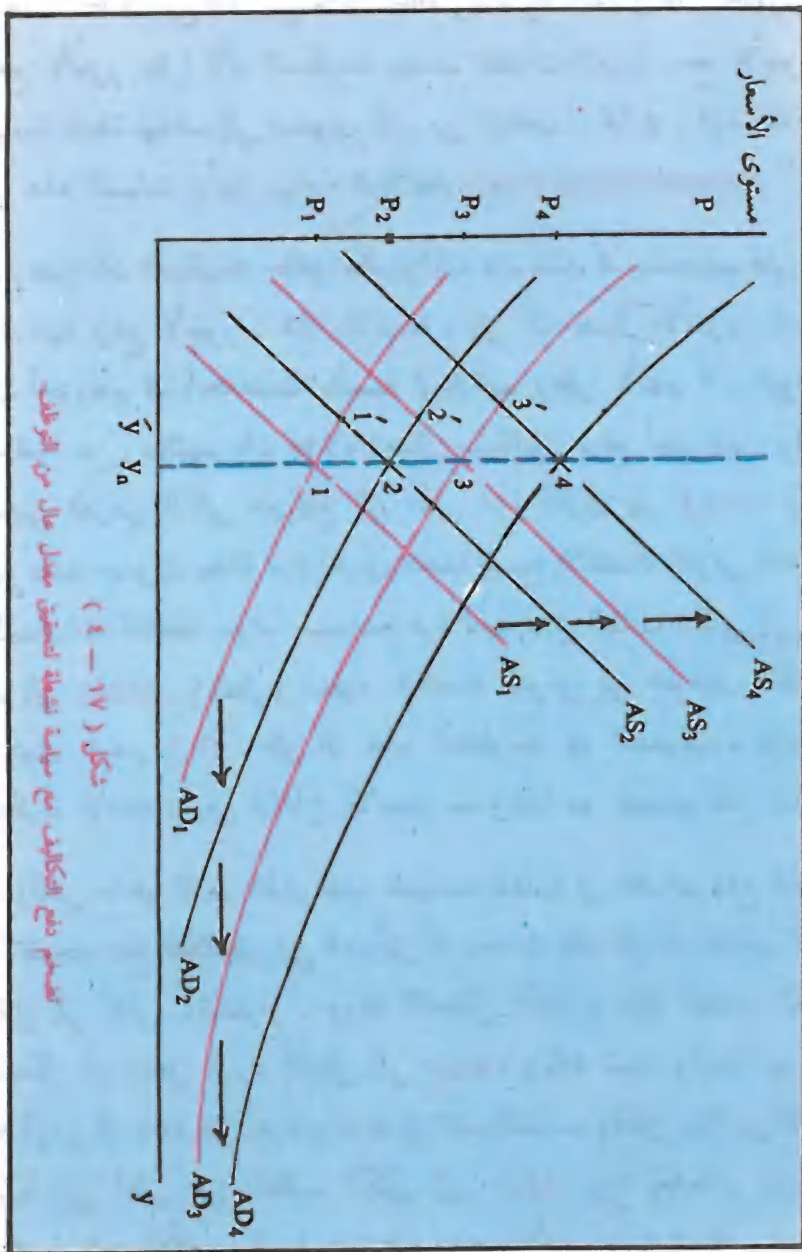 مستوى الأسعار
P
P4
P3
P2
P1
AS4
AS3
AS2
AS1
3′
2′
1′
4
3
2
1
AD1
AD2
AD3
AD4
ý yn
y
شكل ( ١٧ – ٤ )
تضخم دفع التكاليف مع سياسة نشطة لتحقيق معدل عال من التوظف